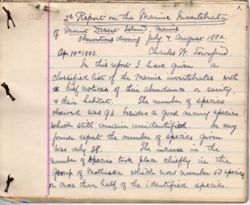 2d Report on the Marine Invertebrata
of Mount Desert Island, Maine
during July & August 1882.
Apr 19th 1883. Charles W. Townsend
In this report I have given a
classified list of the Marine invertebrates with
a brief notices of their abundance or rarity,
& their habitat. The number of species
is 93 besides a good many species
which still remain unidentified. In my
former report the number of species given
was only 38. The increase in the
number of species took place chiefly in the
group of Mollusca which now number 53 species
or more than half of the identified species.